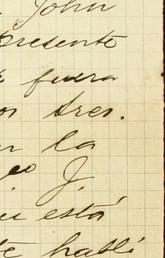 John
Presente
fuera
os tres.
n la
eo J.
ui está
te hablé